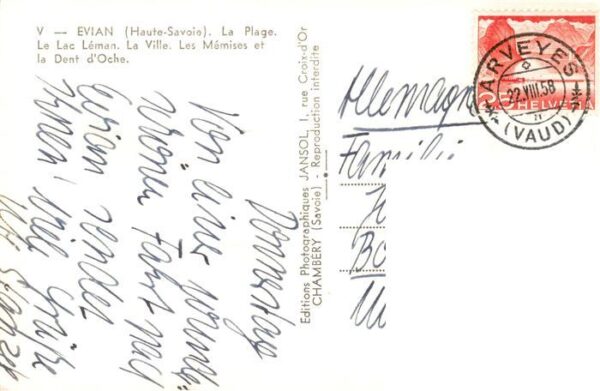 V — EVIAN (Haute-Savoie). La Plage.
Le Lac Léman. La Ville. Les Mémises et
la Dent d'Oche.
Donnerstag
Von einer
Fahrt nach
Evian sendet
Ihnen viele Grüße
Editions Photographiques JANSOL, 1, rue Croix-d'Or
CHAMBÉRY (Savoie) - Reproduction interdite
Allemagne
Famili
Bo
ARVEYES
22.VIII.58
(VAUD)
HELVETIA